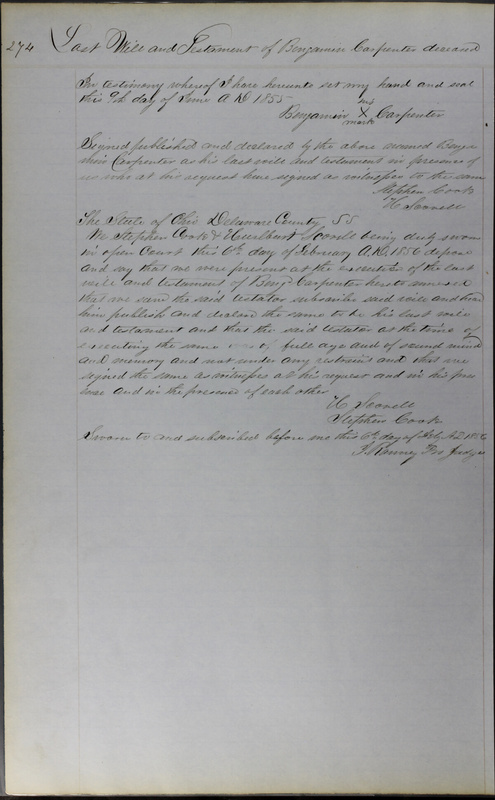 274 Last Will and Testament of Benjamin Carpenter deceased
In testimony whereof I have hereunto set my hand and seal
this 7th day of June A D 1855
his
Benjamin X Carpenter
mark
Signed published and declared by the above named Benja
min Carpenter as his last will and testament in presence of
us who at his request have signed as witnesses to the same
Stephen Cook
H Scovell
The State of Ohio Delaware County SS
We Stephen Cook & Hurlburt Scovell being duly sworn
in open Court this 6th day of February A.D. 1856 depose
and say that we were present at the execution of the last
will and testament of Benjn Carpenter hereto annexed
that we saw the said testator subscribe said will and heard
him publish and declare the same to be his last will
and testament and that the said testator at the time of
executing the same was of full age and of sound mind
and memory and not under any restraint and that we
signed the same as witnesses at his request and in his pre
sence and in the presence of each other
H Scovell
Stephen Cook
Sworn to and subscribed before me this 6th day of Feby A D 1856
Ranney Pro Judge